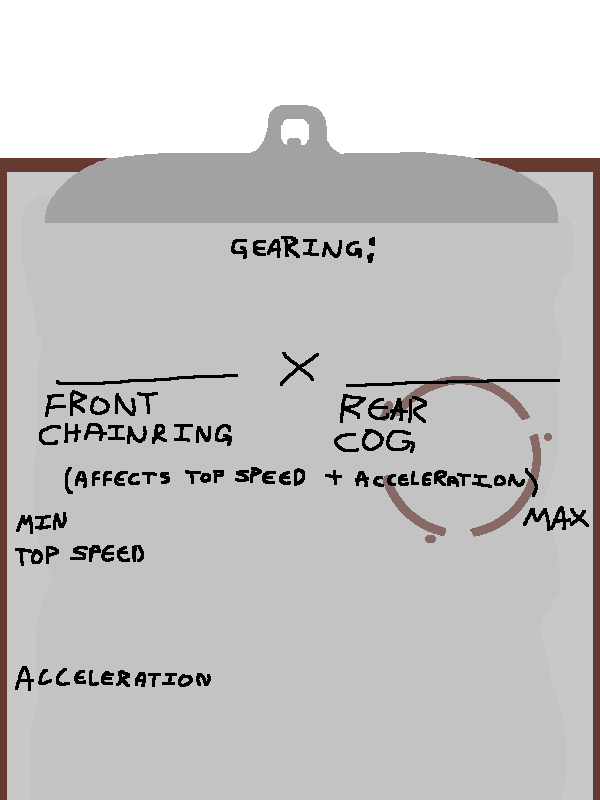 GEARING:
X
FRONT REAR
CHAINRING COG
(AFFECTS TOP SPEED + ACCELERATION)
MIN MAX
TOP SPEED
ACCELERATION